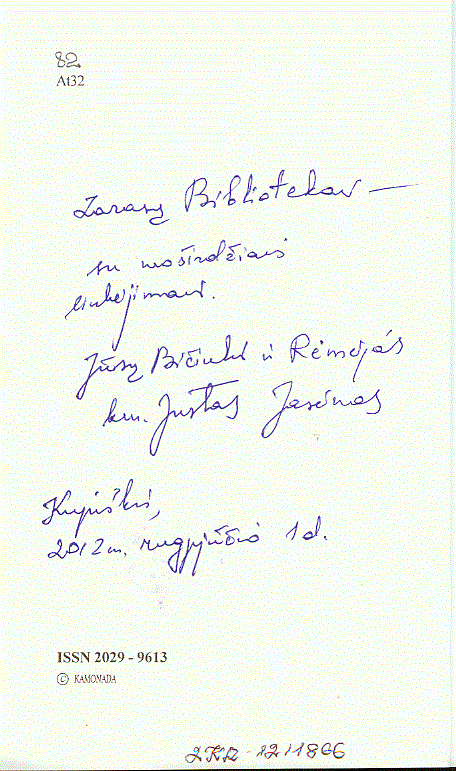 82
At32
Zarasų Bibliotekai —
su nuoširdžiais
linkėjimais.
Jūsų Bičiulis ir Rėmėjas
kun. Justas Jasėnas
Kupiškis,
2012 m. rugpjūčio 1 d.
ISSN 2029 - 9613
© KAMONADA
ZKR - 1211866